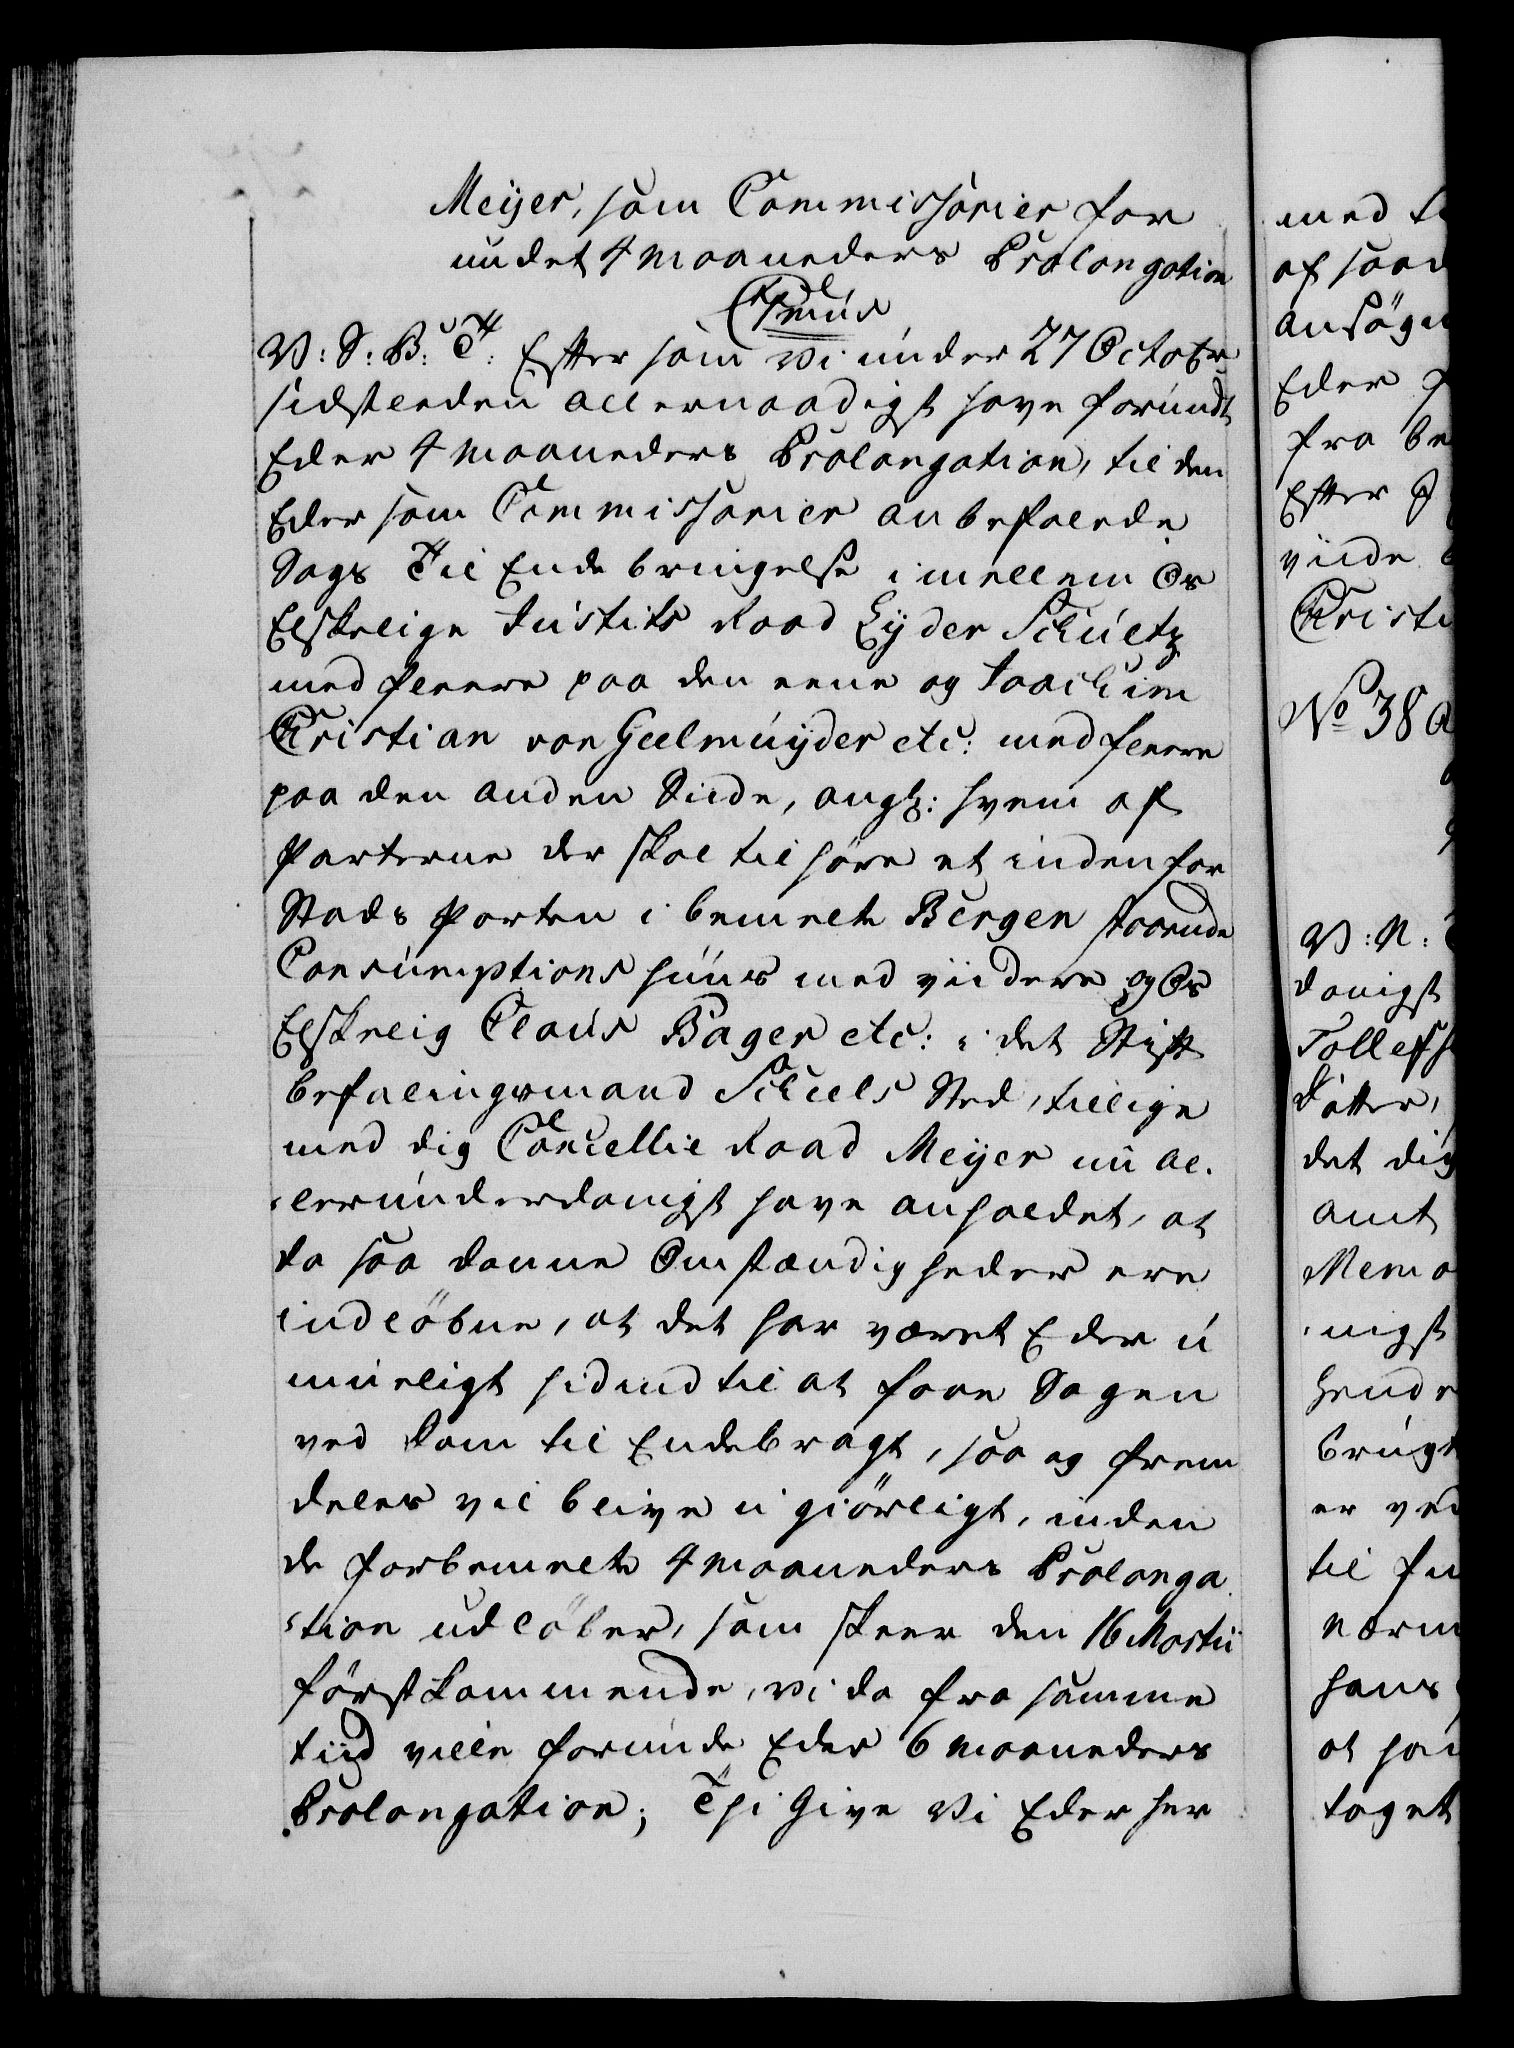 Meÿer, som Commissarier for
undet 4 Maaneders Prolongation
V: S: B: T: Efter som Vi under 27 Octobr
sidstleeden allernaadigst have forundt
Eder 4 Maaneders Prolongation, til den
Eder som Commissarier anbefalede
Sags Til Ende bringelse imellem Os
Elskelige Justits Raad Eÿder Schültz
med fleere paa den eene og Joachim
Christian von Geelmuÿden etc: med fleere
paa den anden Siide, angl: hvem af
Parterne der skal tilhöre et inden for
Stads Porten i bemelte Bergen staaende
Consumptions Huus med viidere og Os
Elskelig Claus Fager etc: i det Stift
befalingsmand Scheels Sted, tillige
med dig Cancellie Raad Meÿer nu al¬
lerunderdanigst have anholdet, at
da saadanne Omstændigheder ere
indlöbne, at det har været Eder u
mueligt hidindtil at faae Sagen
ved Dom til Endebragt, saa og frem
deles vil blive ugiörligt, inden
de forbemelte 4 Maaneders Prolonga
tion udlöber, som skeer den 16 Martii
förstkommende, Vi da fra samme
tiid ville forunde Eder 6 Maaneders
Prolongation; Thi Give Vi Eder her
med
af saad
ansögn
Eder
fra be
Efter
viide
Christi
No 38
V: N:
danigst
Tollefs
Datter,
det dig
amt
Memo
nigst
hende
brugt
er ved
til
nærm
hans
at
taget